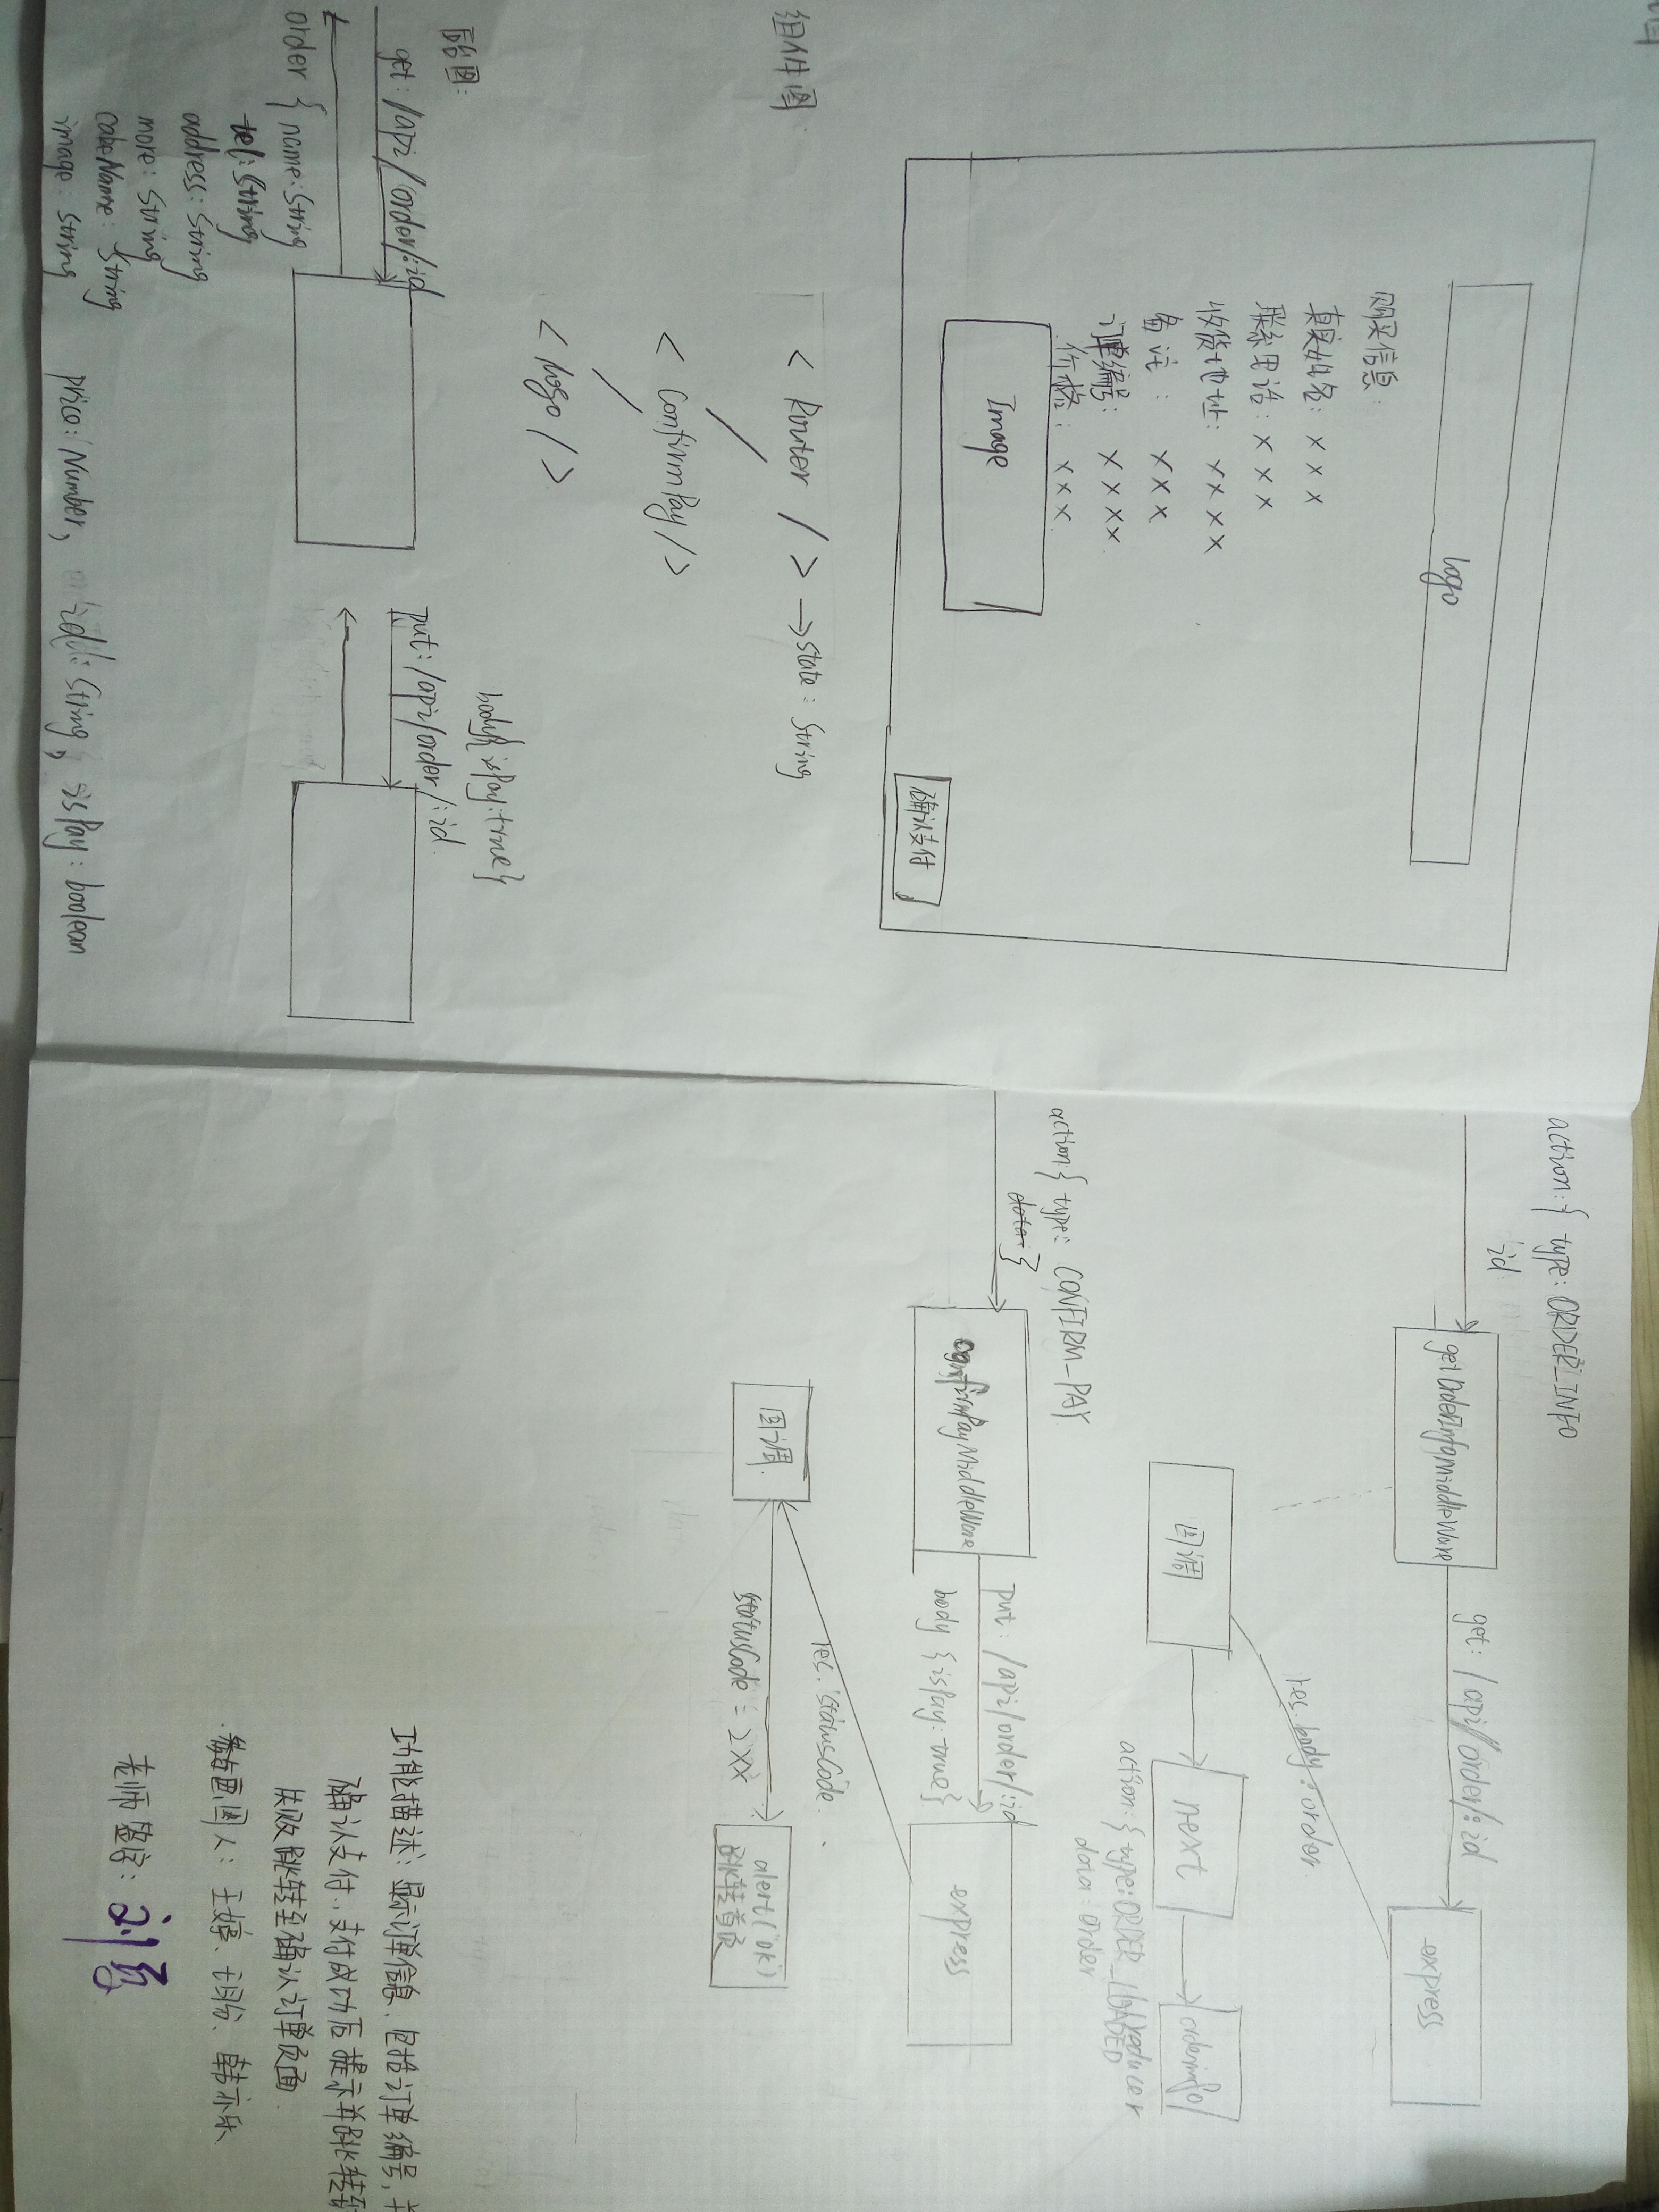 logo
购买信息:
真实姓名: x x x
联系电话: x x x
收货地址: x x x x
备注: x x x
订单编号: x x x x
价格: x x x
Image
确认支付
组件图
< Router / > → state: String
< ConfirmPay / >
< logo / >
后台图:
get: /api/order/:id
order { name: String
tel: String
address: String
more: String
cakeName: String
image: String
price: Number, id: String, isPay: boolean
body{ isPay: true}
put: /api/order/:id
action: { type: ORDER_INFO
id:
getOrderInfoMiddleWare
get: /api/order/:id
express
res.body: order
回调
next
action: { type: ORDER_LOADED
data: order
reducer
orderinfo
action: { type: CONFIRM_PAY
data: }
confirmPayMiddleWare
put: /api/order/:id
body {isPay: true}
express
res.statusCode
回调
statusCode = 2XX
alert('ok')
跳转首页
功能描述: 显示订单信息、包括订单编号,
确认支付, 支付成功后提示并跳转
失败跳转至确认订单页面
画图人:
老师签字: